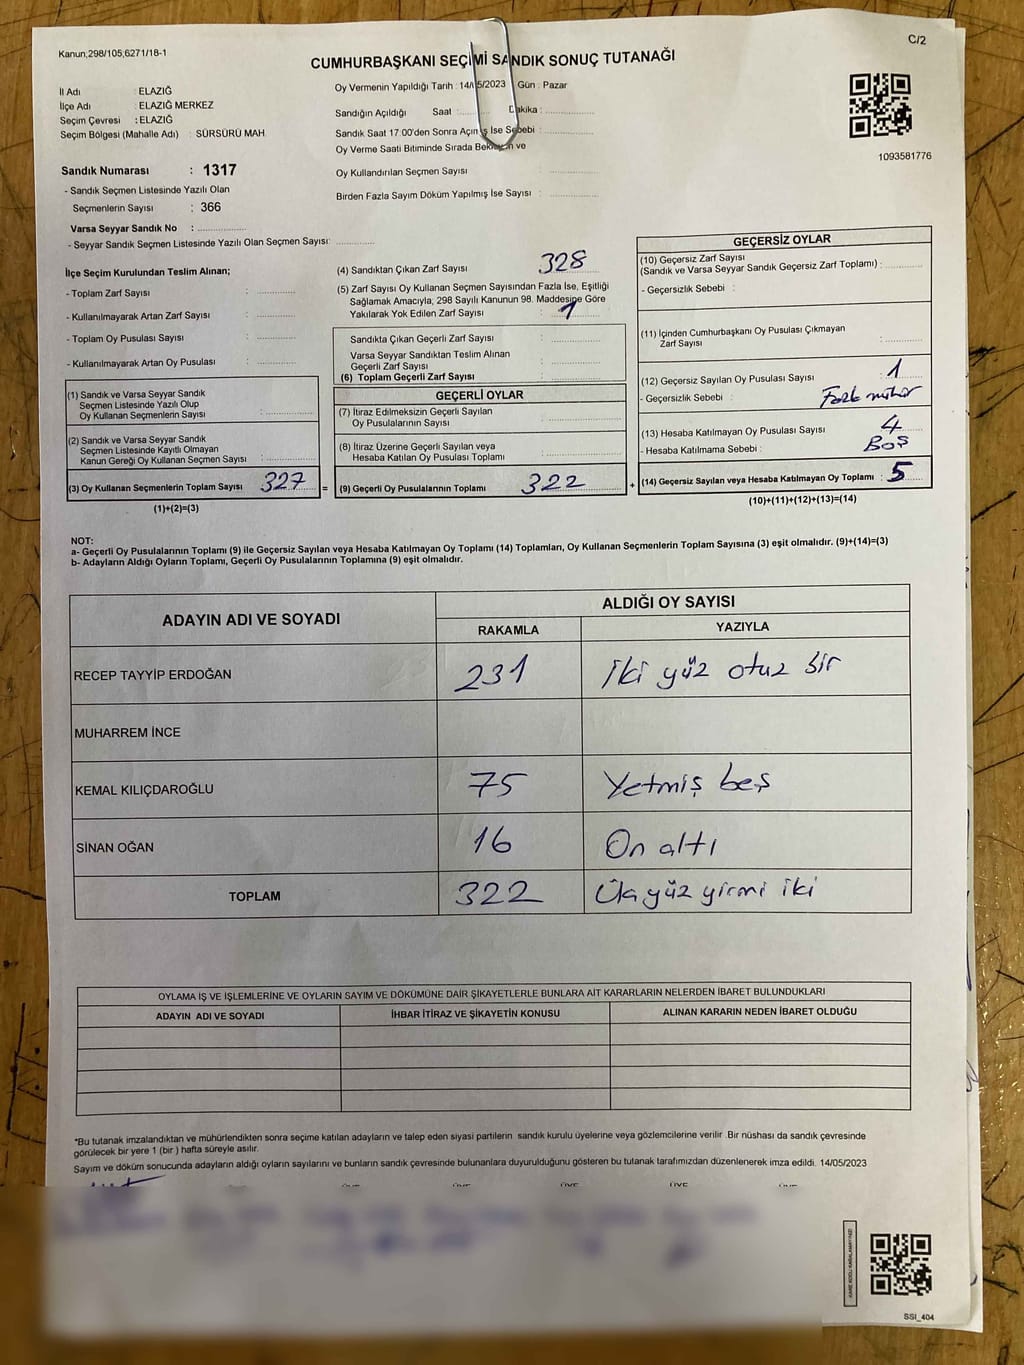 Kanun;298/105;6271/18-1
C/2
CUMHURBAŞKANI SEÇİMİ SANDIK SONUÇ TUTANAĞI
İl Adı : ELAZIĞ
İlçe Adı : ELAZIĞ MERKEZ
Seçim Çevresi : ELAZIĞ
Seçim Bölgesi (Mahalle Adı) : SÜRSÜRÜ MAH.
Oy Vermenin Yapıldığı Tarih : 14/05/2023 Gün : Pazar
Sandığın Açıldığı Saat :........ Dakika :
Sandık Saat 17 00'den Sonra Açılmış İse Sebebi :
Oy Verme Saati Bitiminde Sırada Bekleyen ve
Oy Kullandırılan Seçmen Sayısı :
Birden Fazla Sayım Döküm Yapılmış İse Sayısı :
1093581776
Sandık Numarası : 1317
- Sandık Seçmen Listesinde Yazılı Olan
Seçmenlerin Sayısı : 366
Varsa Seyyar Sandık No :
- Seyyar Sandık Seçmen Listesinde Yazılı Olan Seçmen Sayısı:
İlçe Seçim Kurulundan Teslim Alınan;
- Toplam Zarf Sayısı :
- Kullanılmayarak Artan Zarf Sayısı :
- Toplam Oy Pusulası Sayısı :
- Kullanılmayarak Artan Oy Pusulası :
(1) Sandık ve Varsa Seyyar Sandık
Seçmen Listesinde Yazılı Olup
Oy Kullanan Seçmenlerin Sayısı :
(2) Sandık ve Varsa Seyyar Sandık
Seçmen Listesinde Kayıtlı Olmayan
Kanun Gereği Oy Kullanan Seçmen Sayısı :
(3) Oy Kullanan Seçmenlerin Toplam Sayısı : 327 =
(1)+(2)=(3)
(4) Sandıktan Çıkan Zarf Sayısı : 328
(5) Zarf Sayısı Oy Kullanan Seçmen Sayısından Fazla İse, Eşitliği
Sağlamak Amacıyla, 298 Sayılı Kanunun 98. Maddesine Göre
Yakılarak Yok Edilen Zarf Sayısı : 1
Sandıkta Çıkan Geçerli Zarf Sayısı :
Varsa Seyyar Sandıktan Teslim Alınan
Geçerli Zarf Sayısı :
(6) Toplam Geçerli Zarf Sayısı :
GEÇERLİ OYLAR
(7) İtiraz Edilmeksizin Geçerli Sayılan
Oy Pusulalarının Sayısı :
(8) İtiraz Üzerine Geçerli Sayılan veya
Hesaba Katılan Oy Pusulası Toplamı :
(9) Geçerli Oy Pusulalarının Toplamı : 322 +
GEÇERSİZ OYLAR
(10) Geçersiz Zarf Sayısı
(Sandık ve Varsa Seyyar Sandık Geçersiz Zarf Toplamı) :
- Geçersizlik Sebebi :
(11) İçinden Cumhurbaşkanı Oy Pusulası Çıkmayan
Zarf Sayısı :
(12) Geçersiz Sayılan Oy Pusulası Sayısı : 1
- Geçersizlik Sebebi : Fazla mühür
(13) Hesaba Katılmayan Oy Pusulası Sayısı : 4
- Hesaba Katılmama Sebebi : Boş
(14) Geçersiz Sayılan veya Hesaba Katılmayan Oy Toplamı : 5
(10)+(11)+(12)+(13)=(14)
NOT:
a- Geçerli Oy Pusulalarının Toplamı (9) ile Geçersiz Sayılan veya Hesaba Katılmayan Oy Toplamı (14) Toplamları, Oy Kullanan Seçmenlerin Toplam Sayısına (3) eşit olmalıdır. (9)+(14)=(3)
b- Adayların Aldığı Oyların Toplamı, Geçerli Oy Pusulalarının Toplamına (9) eşit olmalıdır.
ADAYIN ADI VE SOYADI
ALDIĞI OY SAYISI
RAKAMLA YAZIYLA
RECEP TAYYİP ERDOĞAN 231 İki yüz otuz bir
MUHARREM İNCE
KEMAL KILIÇDAROĞLU 75 Yetmiş beş
SİNAN OĞAN 16 On altı
TOPLAM 322 Üçyüz yirmi iki
OYLAMA İŞ VE İŞLEMLERİNE VE OYLARIN SAYIM VE DÖKÜMÜNE DAİR ŞİKAYETLERLE BUNLARA AİT KARARLARIN NELERDEN İBARET BULUNDUKLARI
ADAYIN ADI VE SOYADI İHBAR İTİRAZ VE ŞİKAYETİN KONUSU ALINAN KARARIN NEDEN İBARET OLDUĞU
*Bu tutanak imzalandıktan ve mühürlendikten sonra seçime katılan adayların ve talep eden siyasi partilerin sandık kurulu üyelerine veya gözlemcilerine verilir .Bir nüshası da sandık çevresinde
görülecek bir yere 1 (bir ) hafta süreyle asılır.
Sayım ve döküm sonucunda adayların aldığı oyların sayılarını ve bunların sandık çevresinde bulunanlara duyurulduğunu gösteren bu tutanak tarafımızdan düzenlenerek imza edildi. 14/05/2023
ÜYE ÜYE
SSI_404